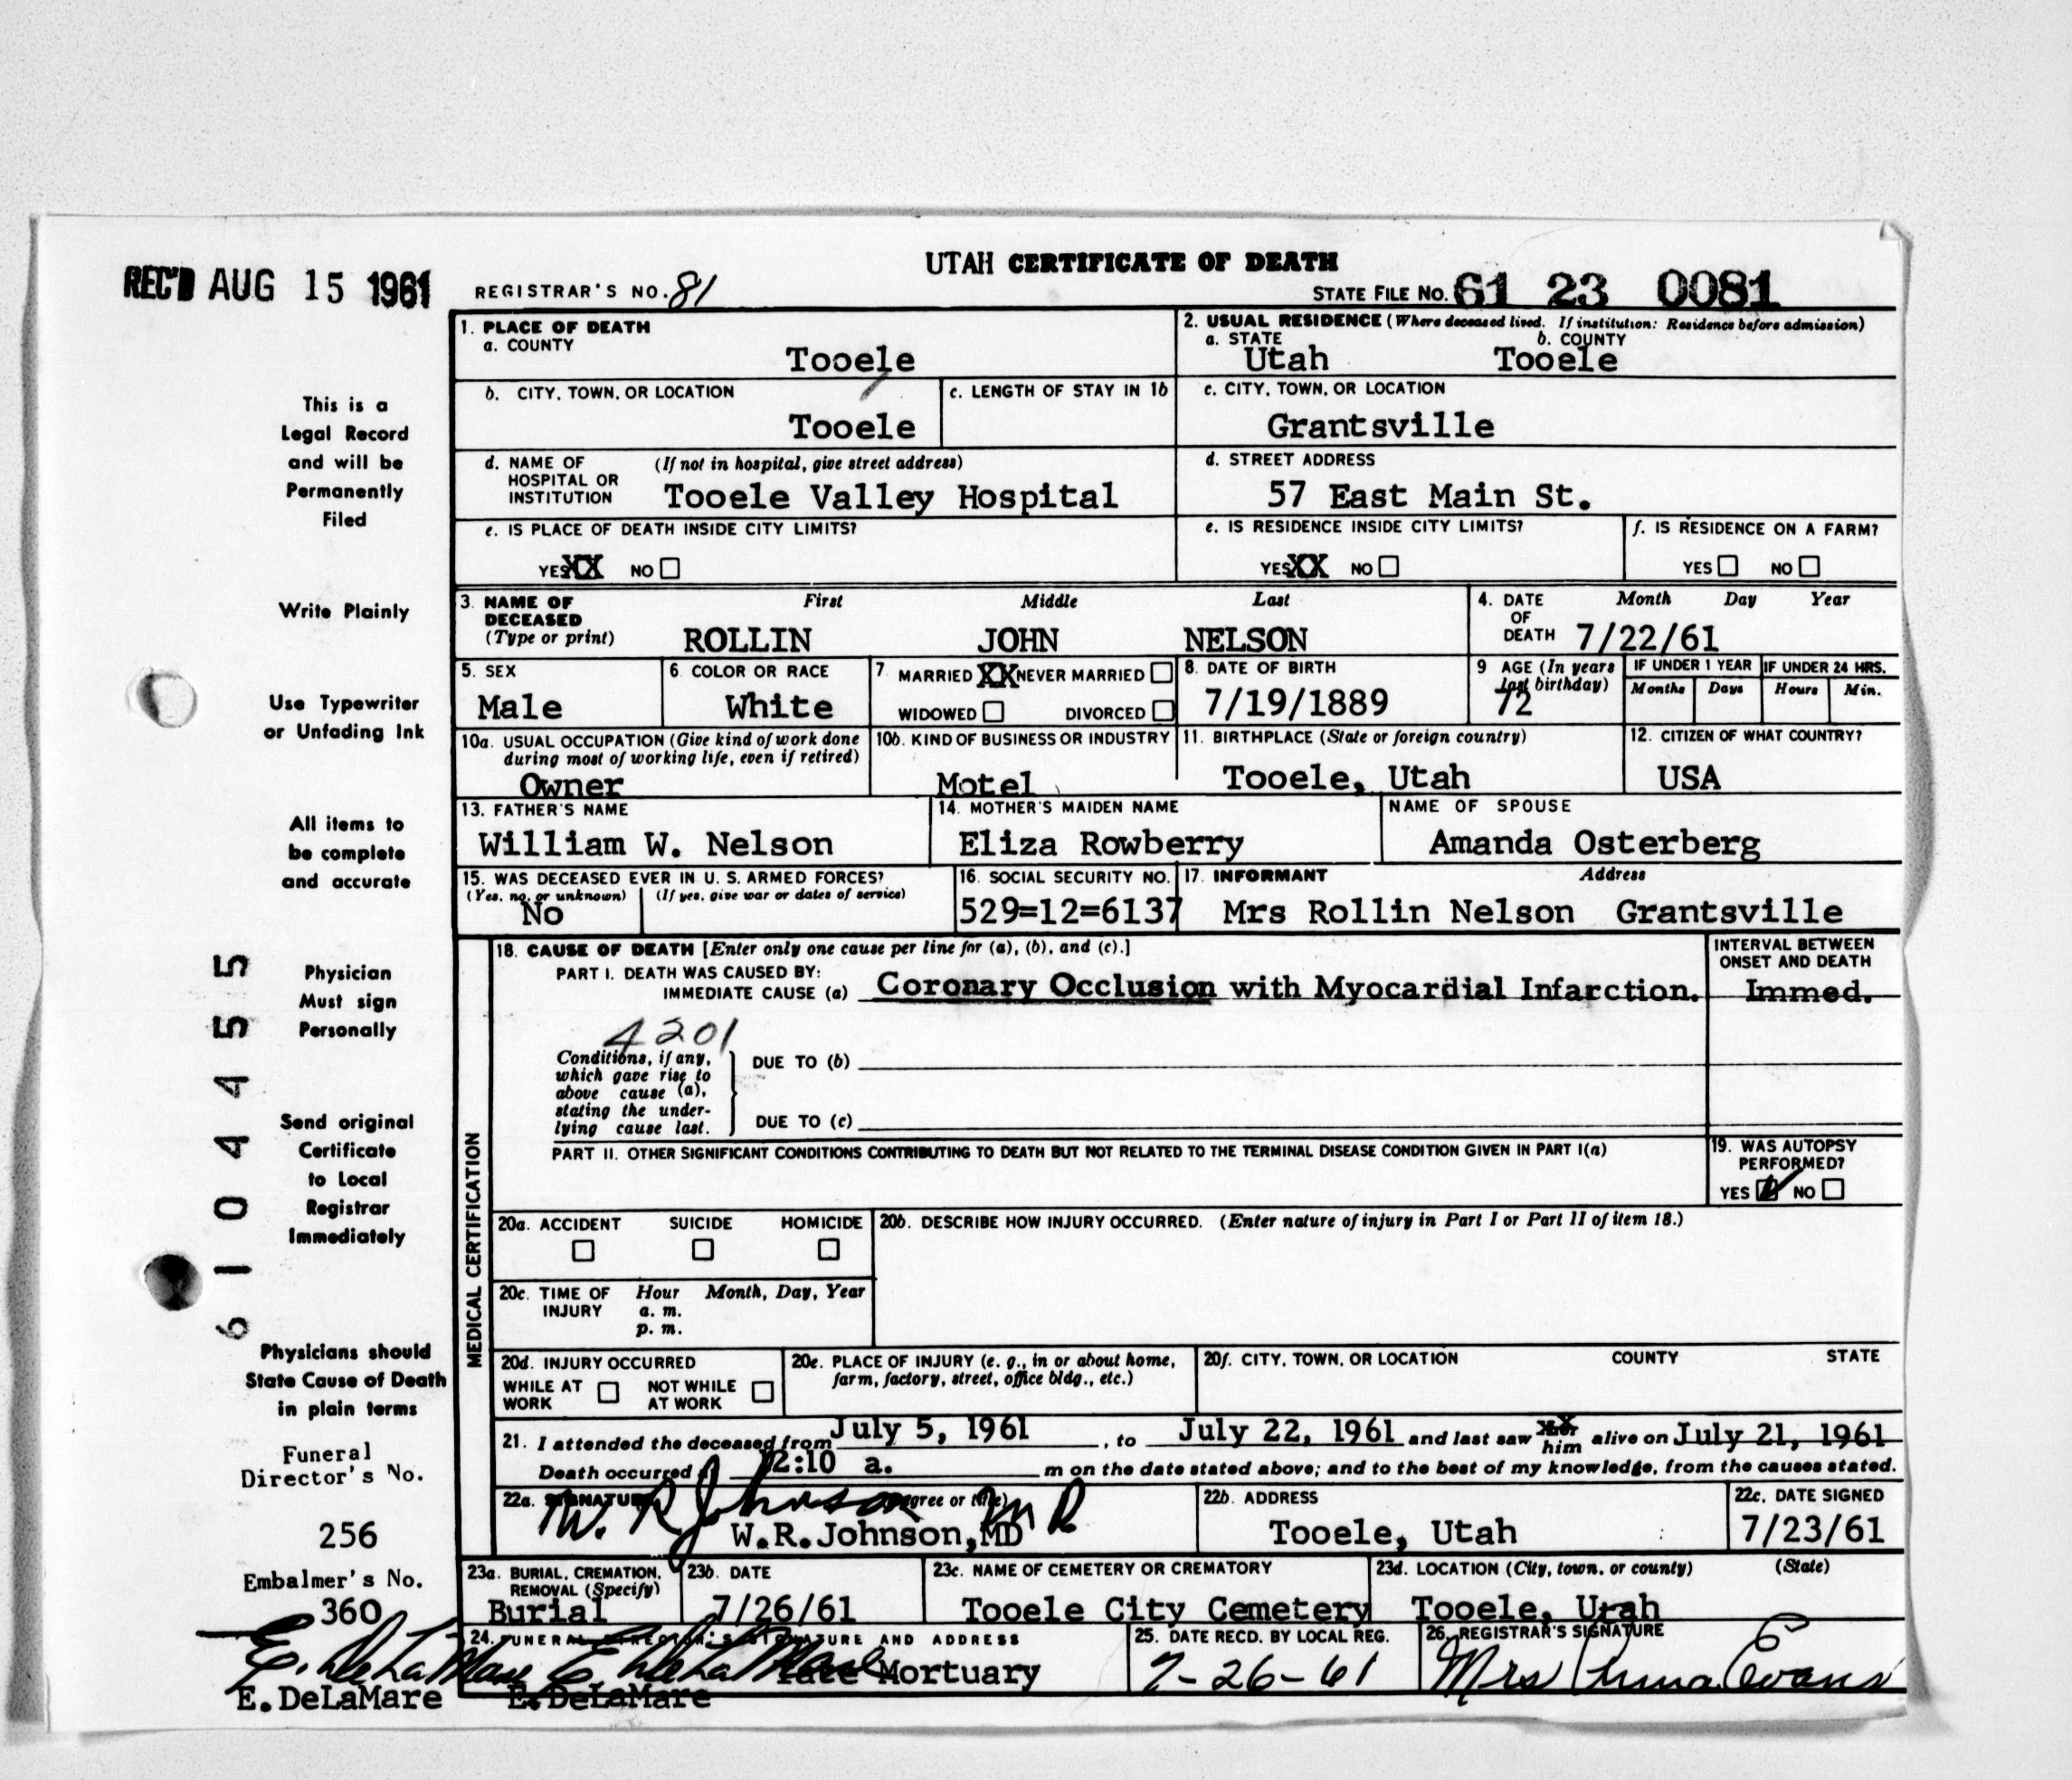 UTAH CERTIFICATE OF DEATH
REC'D AUG 15 1961 REGISTRAR'S NO. 81 STATE FILE NO. 61 23 0081
1. PLACE OF DEATH
a. COUNTY
Tooele
2. USUAL RESIDENCE (Where deceased lived. If institution: Residence before admission)
a. STATE b. COUNTY
Utah Tooele
b. CITY, TOWN, OR LOCATION
Tooele
c. LENGTH OF STAY IN 1b
c. CITY, TOWN, OR LOCATION
Grantsville
d. NAME OF HOSPITAL OR INSTITUTION (If not in hospital, give street address)
Tooele Valley Hospital
d. STREET ADDRESS
57 East Main St.
e. IS PLACE OF DEATH INSIDE CITY LIMITS?
YES XX NO
e. IS RESIDENCE INSIDE CITY LIMITS?
YES XX NO
f. IS RESIDENCE ON A FARM?
YES NO
3. NAME OF DECEASED (Type or print)
First Middle Last
ROLLIN JOHN NELSON
4. DATE OF DEATH Month Day Year
7/22/61
5. SEX
Male
6. COLOR OR RACE
White
7. MARRIED XX NEVER MARRIED
WIDOWED DIVORCED
8. DATE OF BIRTH
7/19/1889
9 AGE (In years last birthday)
72
IF UNDER 1 YEAR IF UNDER 24 HRS.
Months Days Hours Min.
10a. USUAL OCCUPATION (Give kind of work done during most of working life, even if retired)
Owner
10b. KIND OF BUSINESS OR INDUSTRY
Motel
11. BIRTHPLACE (State or foreign country)
Tooele, Utah
12. CITIZEN OF WHAT COUNTRY?
USA
13. FATHER'S NAME
William W. Nelson
14. MOTHER'S MAIDEN NAME
Eliza Rowberry
NAME OF SPOUSE
Amanda Osterberg
15. WAS DECEASED EVER IN U. S. ARMED FORCES?
(Yes, no, or unknown) (If yes, give war or dates of service)
No
16. SOCIAL SECURITY NO.
529=12=6137
17. INFORMANT Address
Mrs Rollin Nelson Grantsville
MEDICAL CERTIFICATION
18. CAUSE OF DEATH [Enter only one cause per line for (a), (b), and (c).]
PART I. DEATH WAS CAUSED BY:
IMMEDIATE CAUSE (a) Coronary Occlusion with Myocardial Infarction.
INTERVAL BETWEEN ONSET AND DEATH
Immed.
4201
Conditions, if any, which gave rise to above cause (a), stating the underlying cause last.
DUE TO (b)
DUE TO (c)
PART II. OTHER SIGNIFICANT CONDITIONS CONTRIBUTING TO DEATH BUT NOT RELATED TO THE TERMINAL DISEASE CONDITION GIVEN IN PART I(a)
19. WAS AUTOPSY PERFORMED?
YES NO
20a. ACCIDENT SUICIDE HOMICIDE
20b. DESCRIBE HOW INJURY OCCURRED. (Enter nature of injury in Part I or Part II of item 18.)
20c. TIME OF INJURY Hour Month, Day, Year
a. m.
p. m.
20d. INJURY OCCURRED
WHILE AT WORK NOT WHILE AT WORK
20e. PLACE OF INJURY (e. g., in or about home, farm, factory, street, office bldg., etc.)
20f. CITY, TOWN, OR LOCATION COUNTY STATE
21. I attended the deceased from July 5, 1961, to July 22, 1961 and last saw him alive on July 21, 1961
Death occurred 12:10 a. m on the date stated above; and to the best of my knowledge, from the causes stated.
22a. SIGNATURE (Degree or title)
W. R Johnson M D
W.R.Johnson,MD
22b. ADDRESS
Tooele, Utah
22c. DATE SIGNED
7/23/61
23a. BURIAL, CREMATION, REMOVAL (Specify)
Burial
23b. DATE
7/26/61
23c. NAME OF CEMETERY OR CREMATORY
Tooele City Cemetery
23d. LOCATION (City, town, or county) (State)
Tooele, Utah
24. FUNERAL DIRECTOR'S SIGNATURE AND ADDRESS
E. DeLaMare
Tate Mortuary
E.DeLaMare
25. DATE RECD. BY LOCAL REG.
7-26-61
26. REGISTRAR'S SIGNATURE
Mrs Evans
This is a
Legal Record
and will be
Permanently
Filed
Write Plainly
Use Typewriter
or Unfading Ink
All items to
be complete
and accurate
Physician
Must sign
Personally
Send original
Certificate
to Local
Registrar
Immediately
Physicians should
State Cause of Death
in plain terms
6104455
Funeral
Director's No.
256
Embalmer's No.
360
E. DeLaMare
E.DeLaMare